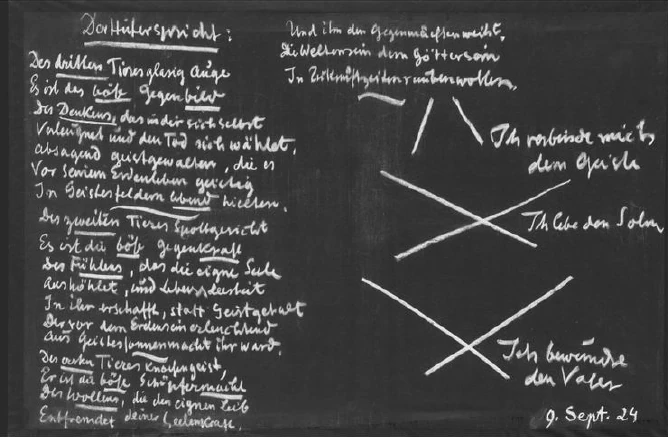 Der Hüter spricht:
Des dritten Tieres glasig Auge
Es ist das böse Gegenbild
Des Denkens, das in dir sich selbst
Verleugnet und den Tod sich wählet,
Absagend Geistgewalten, die es
Vor seinem Erdenleben geistig
In Geistesfeldern lebend hielten.
Des zweiten Tieres Spottgesicht
Es ist die böse Gegenkraft
Des Fühlens, das die eigne Seele
Aushöhlet, und Lebensleerheit
In ihr erschafft, statt Geistgehalt
Der vor dem Erdensein erleuchtend
Aus Geistessonnenmacht ihr ward.
Des ersten Tieres Knochengeist,
Er ist die böse Schöpfermacht
Des Wollens, die den eignen Leib
Entfremdet deiner Seelenkraft.
Und ihn den Gegenmächten weiht,
Die Weltensein dem Göttersein
In Zukunftzeiten rauben wollen.
Ich verbinde mich
dem Geiste
Ich lebe den
Ich bewundre
den Vater
9. Sept. 24